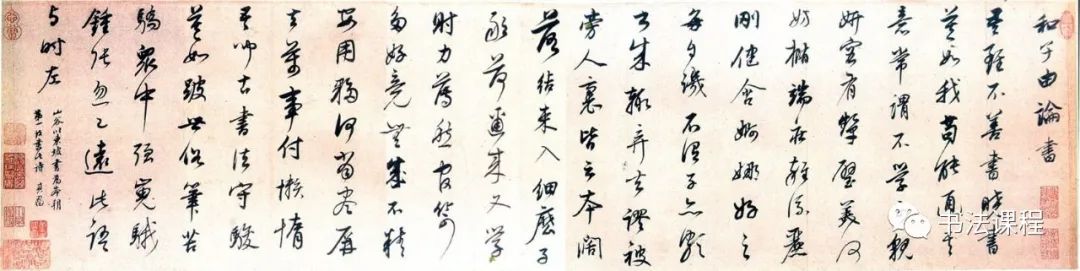 和子由論書
吾雖不善書曉書
莫如我苟能通其
意常謂不學可貌
妍容有顰璧美何
妨橢端莊雜流麗
剛健含婀娜好之
每自譏不謂子亦頗
書成輒棄去謬被
旁人裹皆云本闊
落結束入細麽子
敢荷邇來又學
射力薄愁官笴
多好竟無成不精
安用夥何當盡屏
去萬事付懶惰
吾聞古書法守駿
莫如跛世俗筆苦
驕衆中強嵬騀
鍾張忽已遠此語
與時左
山谷以東坡書為本朝
第一故書此詩 其昌
书法课程